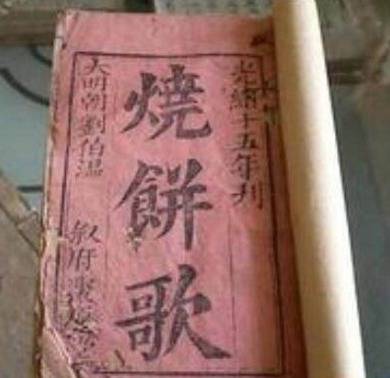 光緒十五年刊
燒餅歌
大明朝劉伯溫
敘府